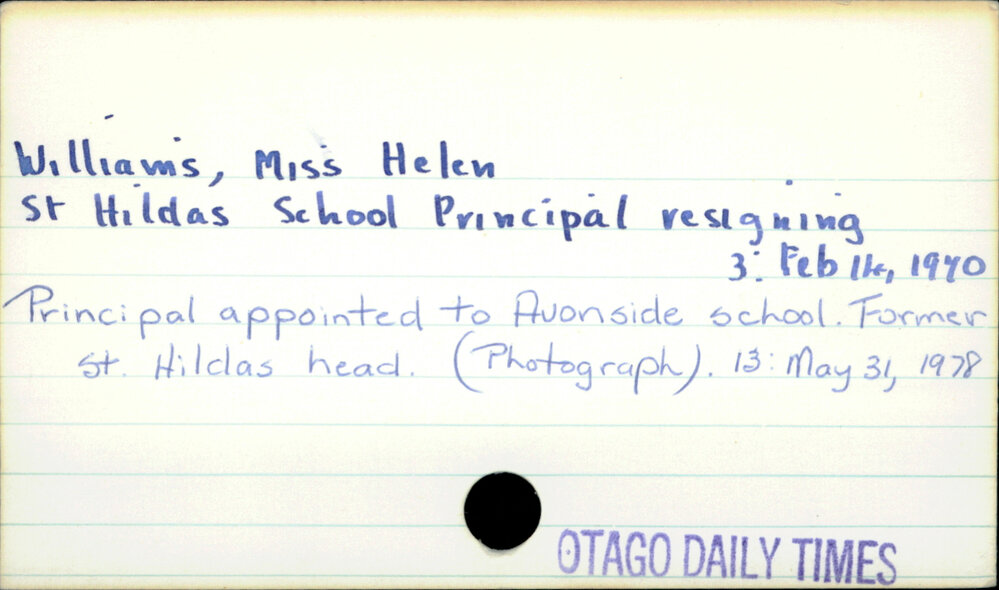 Williams, Miss Helen
St Hildas School Principal resigning
3: Feb 14, 1970
Principal appointed to Avonside school. Former
St. Hildas head. (Photograph). 13: May 31, 1978
OTAGO DAILY TIMES